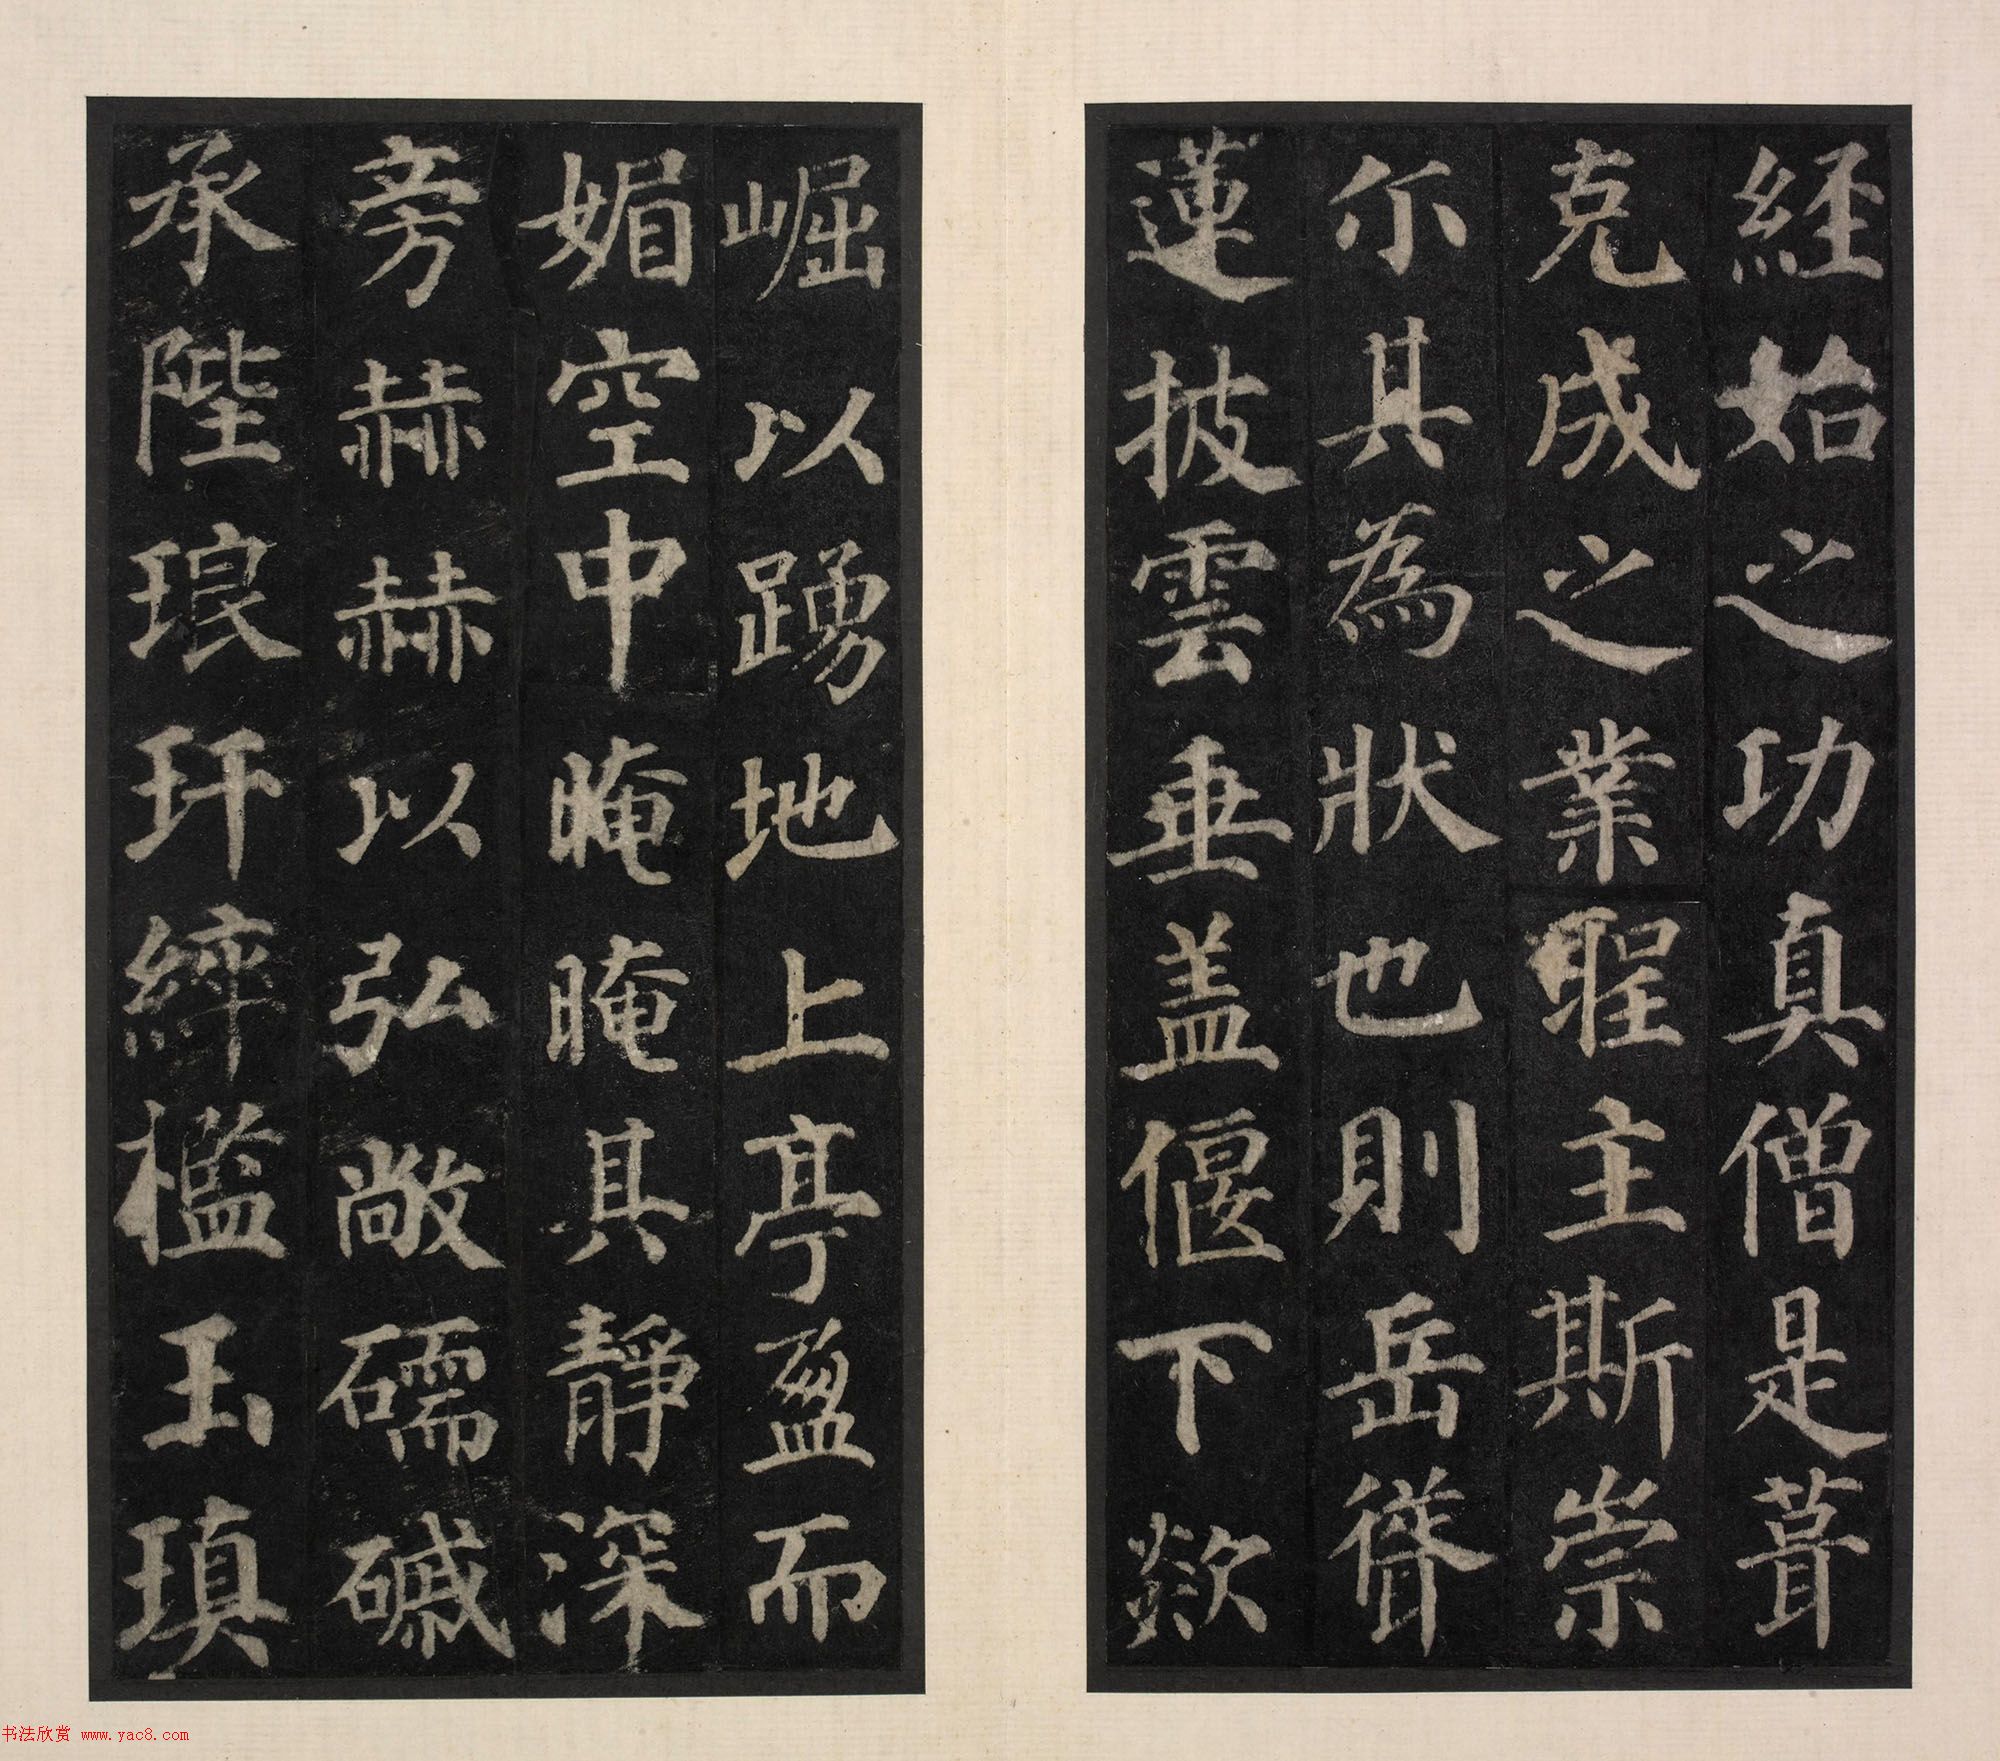 経始之功真僧是葺
克成之業聖主斯崇
尓其為狀也則岳聳
蓮披雲垂盖偃下欻
崛以踴地上亭盈而
媚空中晻晻其靜深
旁赫赫以弘敞礝磩
承陛琅玕綷檻玉瑱
书法欣赏 www.yac8.com